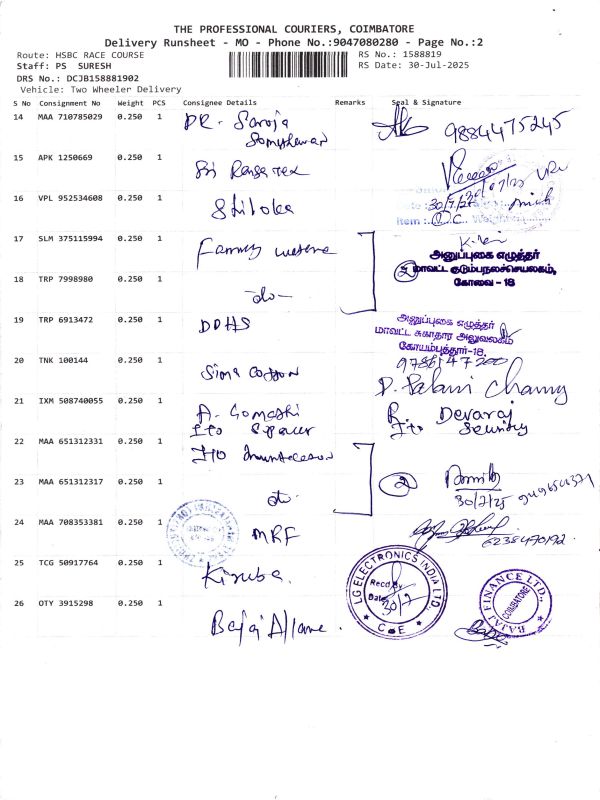 THE PROFESSIONAL COURIERS, COIMBATORE
Delivery Runsheet - MO - Phone No.:9047080280 - Page No.:2
Route: HSBC RACE COURSE
RS No.: 1588819
Staff: PS SURESH
RS Date: 30-Jul-2025
DRS No.: DCJB158881902
Vehicle: Two Wheeler Delivery
S No Consignment No Weight PCS Consignee Details Remarks Seal & Signature
14 MAA 710785029 0.250 1 DR. Saroja
9884475245
15 APK 1250669 0.250 1 Sri
30/07/25
16 VPL 952534608 0.250 1
30/7/25
Item :
17 SLM 375115994 0.250 1 Family
அனுப்புகை எழுத்தர்
2 மாவட்ட குடும்பநலச்செயலகம்,
கோவை - 18
18 TRP 7998980 0.250 1 do
19 TRP 6913472 0.250 1 DDHS
அனுப்புகை எழுத்தர்
மாவட்ட சுகாதார அலுவலகம்
கோயம்புத்தூர்-18.
20 TNK 100144 0.250 1 Sima Cotton
P. Palani Chamy
21 IXM 508740055 0.250 1 A. Gomathi
Devaraj
Ito
Ito Security
22 MAA 651312331 0.250 1 Ito
23 MAA 651312317 0.250 1 do
2
30/7/25
24 MAA 708353381 0.250 1 MRF
6238470192
25 TCG 50917764 0.250 1 Kiruba.
LG ELECTRONICS INDIA LTD.
Recd. By
Date
30/7
CBE
26 OTY 3915298 0.250 1 Bajaj Allianz.
BAJAJ FINANCE LTD.,
COIMBATORE